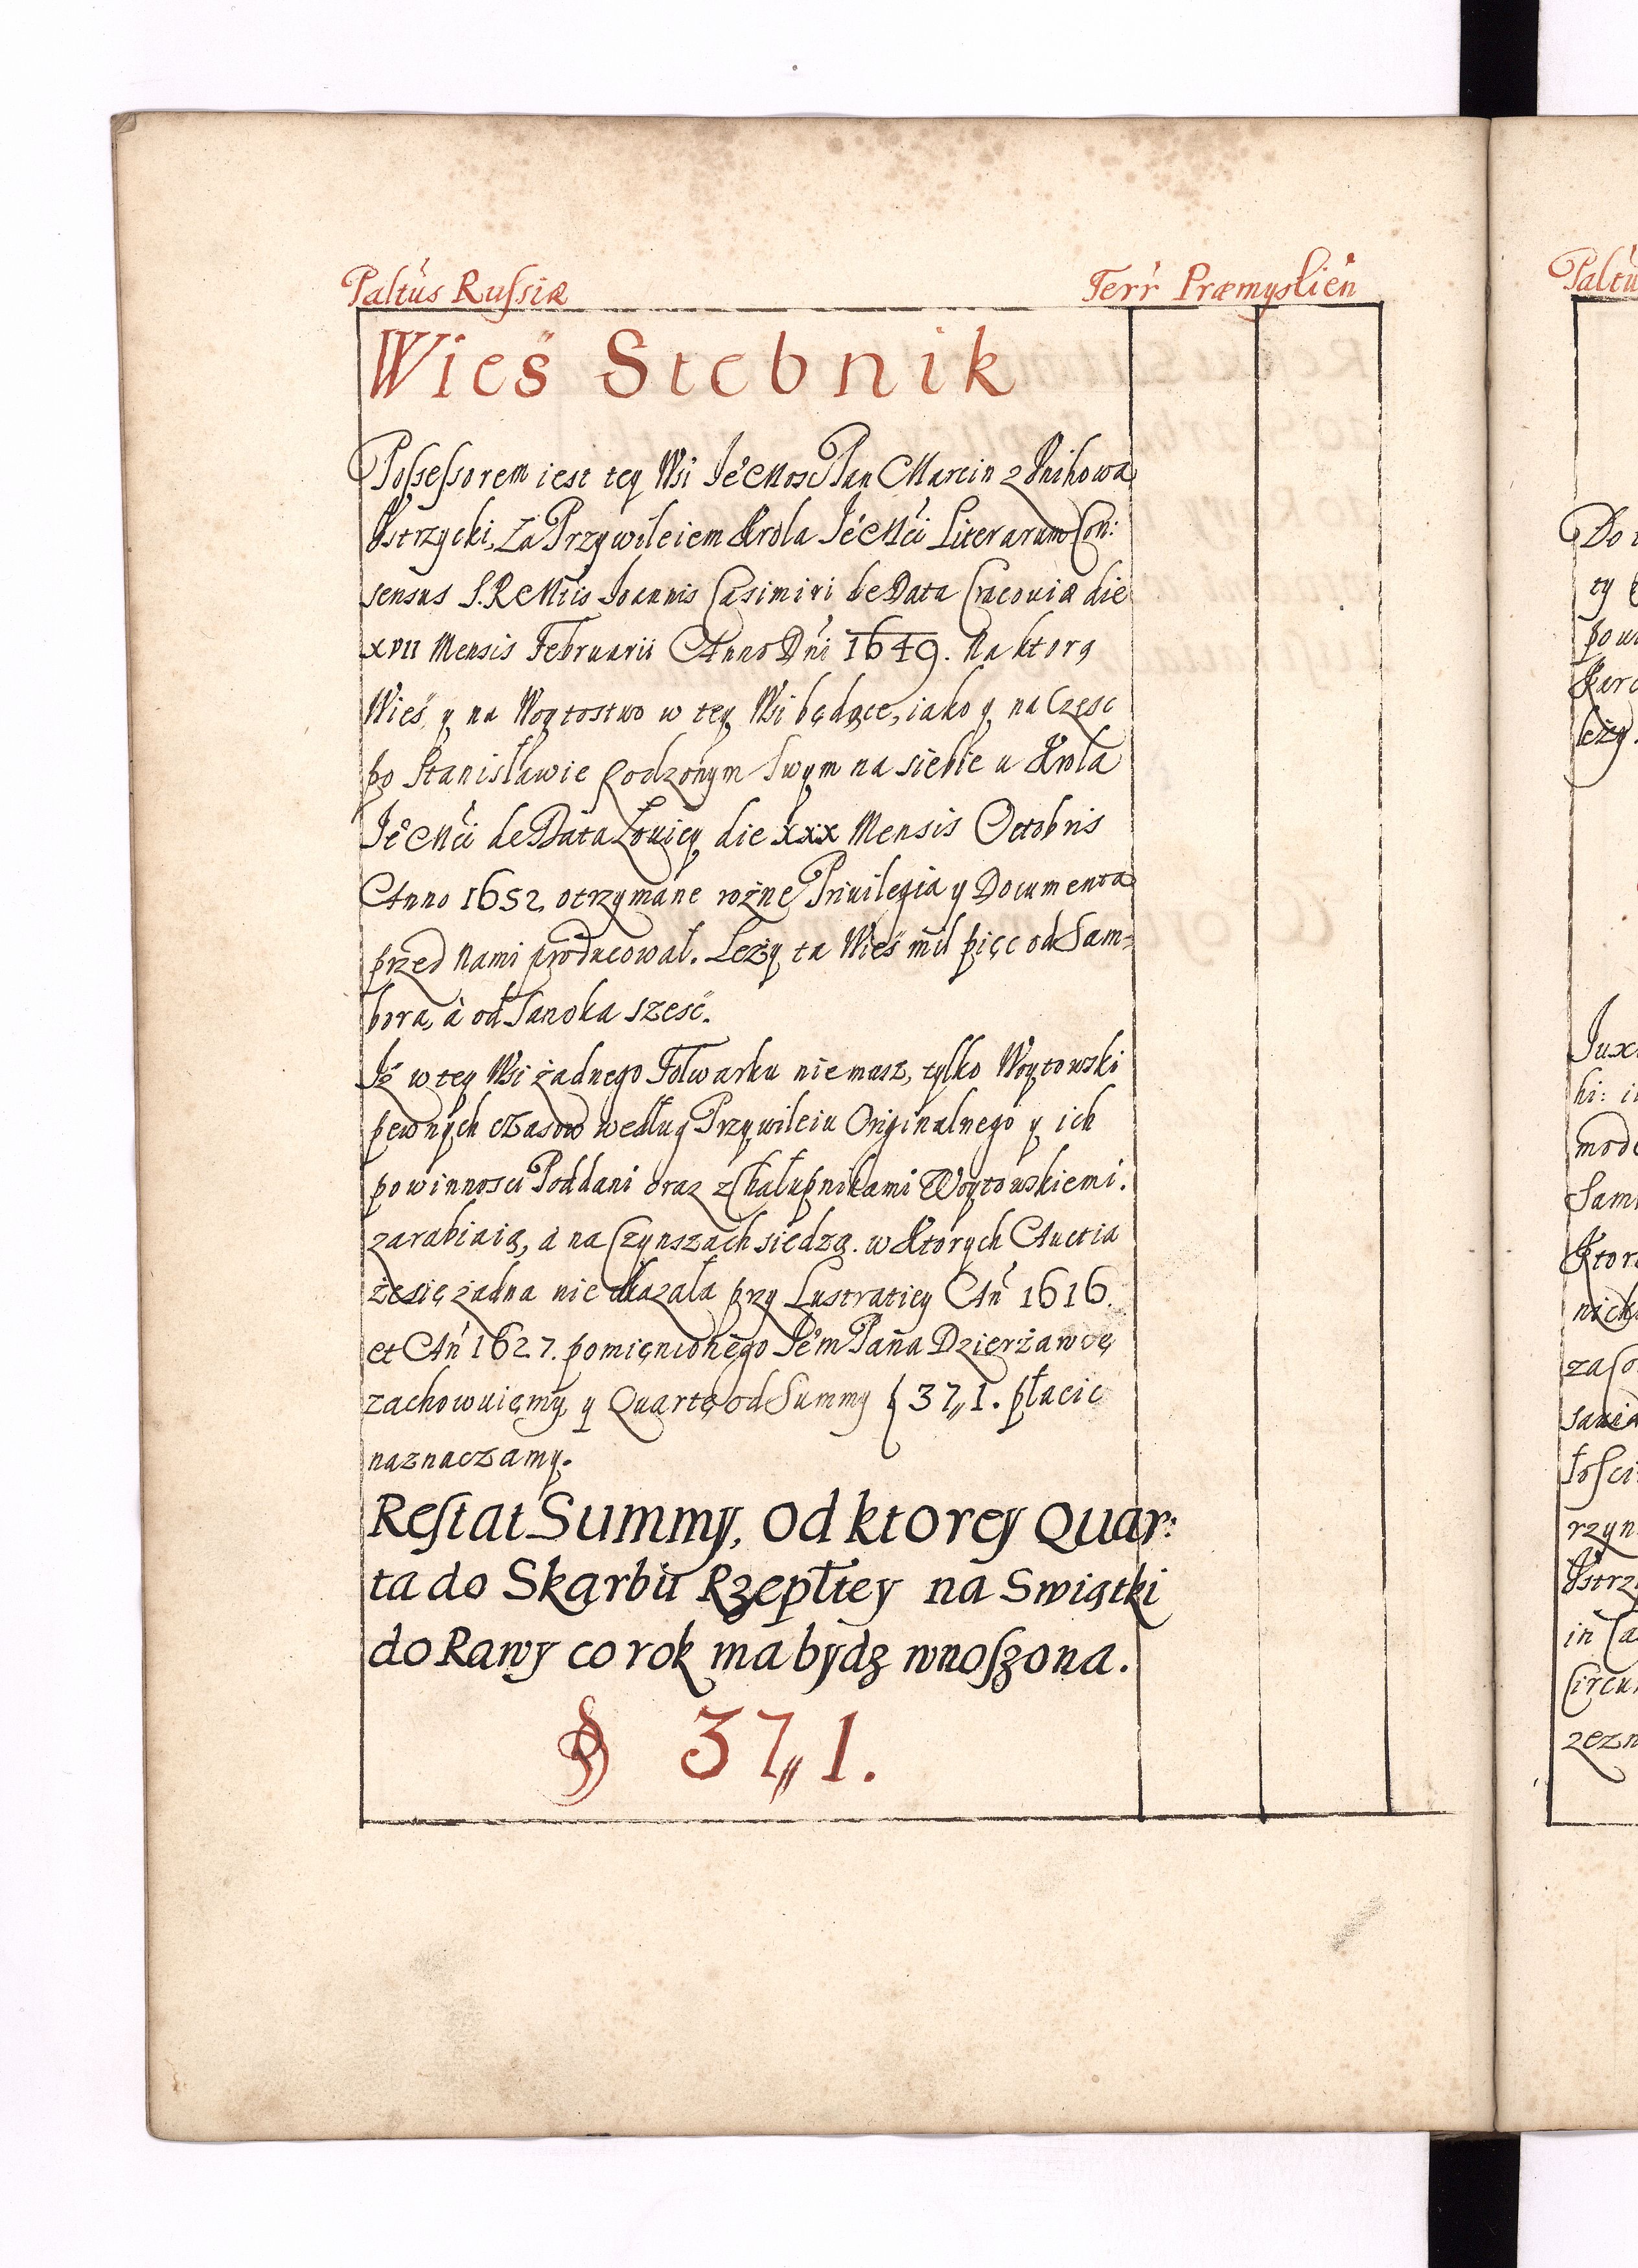 Paltús Rufsiæ
Terŕ Præmysliéń
Wieś Stebnik
Pofsefsorem iest tey Wsi JéEMosć Pan Marcin z Unihowa
Ustrzycki, Za Przywileiem Krola JéEMći Literarum Con:
sensus S. REMtis Joannis Casimiri de Data Cracouiæ die
XVII Mensis Februarii Anno Dńi 1649. Na ktorą
Wieś, y na Woytostwo w tey Wsi będące, iako y na Częsc
po Stanisławie Rodzonym Swym na siebie u Krola
JéEMći de Data Łouicy die xxx Mensis Octobris
Anno 1652 otrzymane rożne Priuilegia y Documenta
przed Nami producował. Leży ta Wieś mil pięc od Sam=
bora, à od Sanoka sześć.
Iż w tey Wsi żadnego Folwarku nie masz, tylko Woytowski
pewnych czasow według Przywileiu Oryginalnego y ich
powinnosci Poddani oraz z Chałupnikami Woytowskiemi.
zarabiaią, a na Czynszach siedzą. w Ktorych Auctia
że się żadna nie okazała przy Lustratiey Ań 1616.
et Ań 1627. pomięnionego Jém Pana Dzierżawcę
zachowuięmy, y Quartę od Summy f 37„1. płacic
naznaczamy.
Reſtat Summy, od ktorey Quar:
ta do Skarbu Rzepltey na Swiątki
do Rawy co rok ma bydz wnoſzona.
f 37„1.